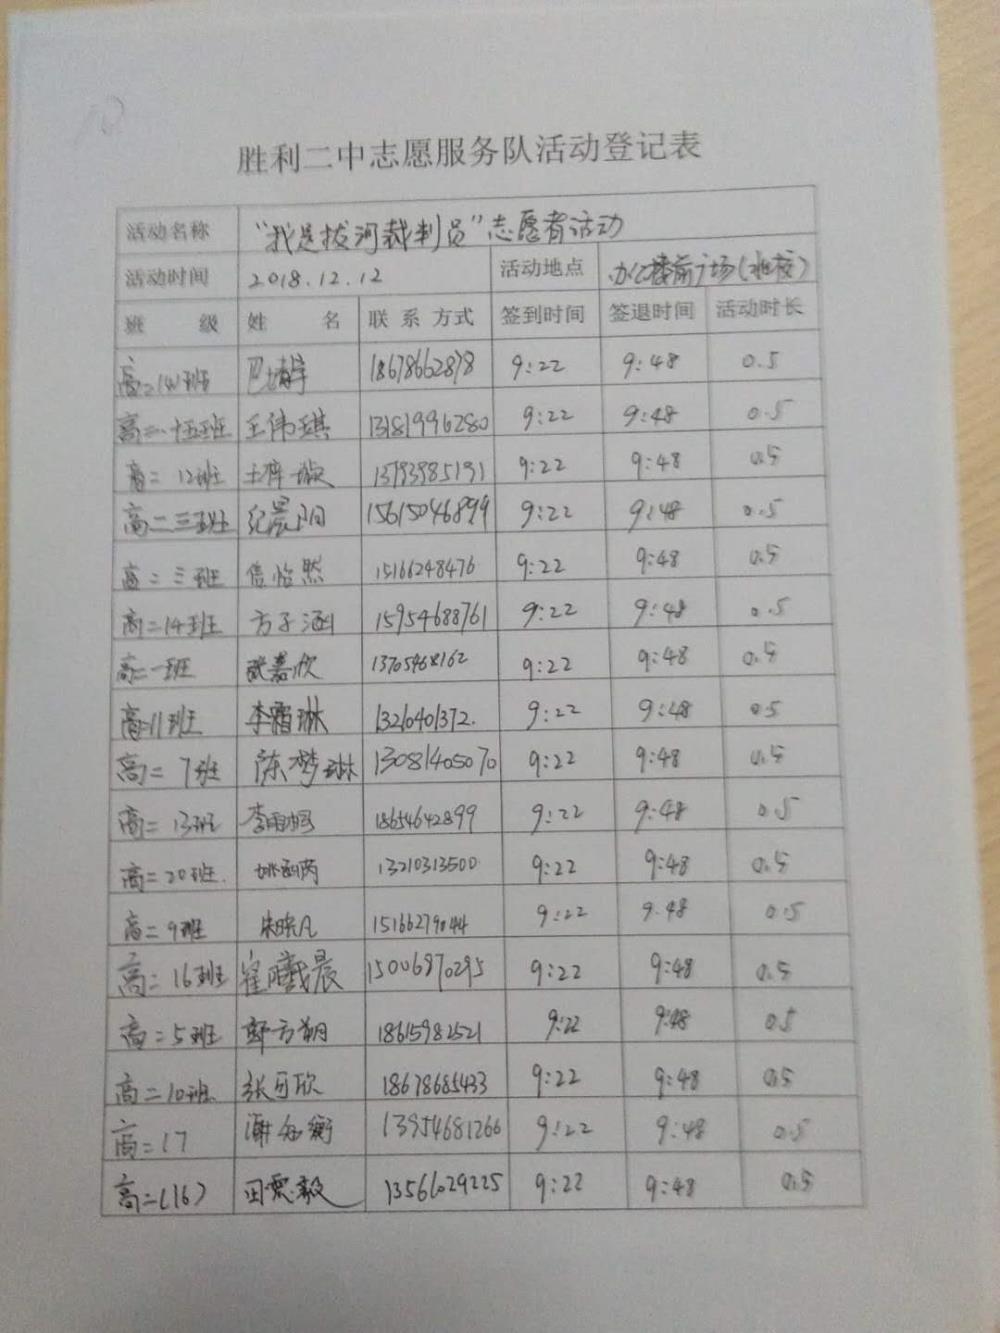 胜利二中志愿服务队活动登记表
活动名称 “我是拔河裁判员”志愿者活动
活动时间 2018.12.12 活动地点 办公楼前广场(北校)
班 级 姓 名 联 系 方式 签到时间 签退时间 活动时长
高二 班 18678662878 9:22 9:48 0.5
高二.十五班 王伟琪 13181996280 9:22 9:48 0.5
高二 12班 13793985191 9:22 9:48 0.5
高二三班 纪晨阳 15615046899 9:22 9:48 0.5
高二三班 信怡然 15166248476 9:22 9:48 0.5
高二14班 方子涵 15954688761 9:22 9:48 0.5
高二一班 武嘉欣 13705468162 9:22 9:48 0.5
高二11班 李霜琳 13216401372. 9:22 9:48 0.5
高二 7班 陈梦琳 13081405070 9:22 9:48 0.5
高二 13班 李雨 18654642899 9:22 9:48 0.5
高二20班. 姚 芮 13210313500 9:22 9:48 0.5
高二9班 朱晓凡 15166279044 9:22 9:48 0.5
高二 16班 崔曦晨 15006870295 9:22 9:48 0.5
高二5班 郭方朔 18615982521 9:22 9:48 0.5
高二10班 张可欣 18678685433 9:22 9:48 0.5
高二17 谢 衡 13954681266 9:22 9:48 0.5
高二(16) 田 毅 13561029225 9:22 9:48 0.5